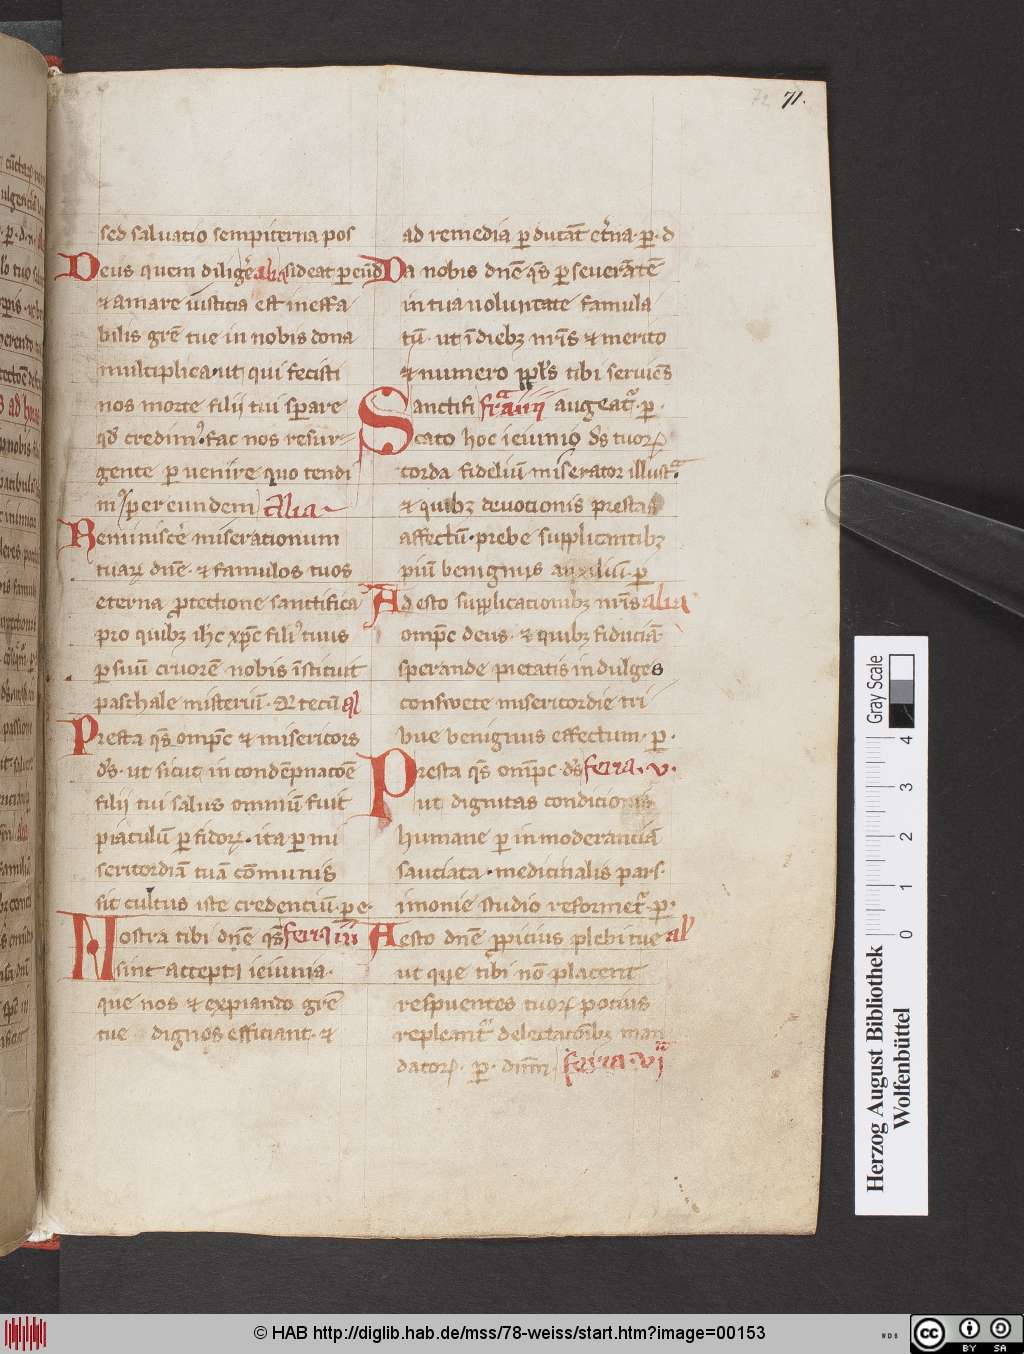 72 71.
sed saluatio sempiterna pos
Deus quem diligẽ alia sideat p eũd
& amare iusticia est ineffa
bilis grẽ tue in nobis dona
multiplica· ut qui fecisti
nos morte filii tui sperare
qđ credimꝰ· fac nos resur
gente puenire quo tendi
mꝰ per eundem Alia
Reminiscẽ miserationum
tuarꝝ dñe· & famulos tuos
eterna ꝓtectione sanctifica
pro quibꝫ ihc xp̃c filiꝰ tuus
p suũ cruorẽ nobis ĩstituit
paschale misteriũ· Q tecũ al
Presta qs̃ omp̃c & misericors
ds̃· ut sicut in condẽpnatoẽ
filii tui salus omniũ fuit
piaculũ pfidorꝝ· ita p mi
sericordiã tuã cõmunis
sit cultus iste credenciũ· p e
Nostra tibi dñe qs̃ feria iii
sint accepta ieiunia·
que nos & expiando grẽ
tue dignos efficiant· &
ad remedia pducãt et̃na· p· d
Da nobis dñe qs̃ pseuerãtẽ
in tua uoluntate famula
tũ· ut ĩ diebꝫ nr̃is & merito
& numero ppl̃s tibi seruiẽs
Sanctifi fr̃a iiii augeat᷑· p·
cato hoc ieiunio ds̃ tuorꝝ
corda fideliũ miserator illust᷑a·
& quibꝫ deuotionis prestas
affectũ· prebe supplicantibꝫ
piũ benignus auxiliũ· p
Adesto supplicationibꝫ nr̃is alia
omp̃c deus· & quibꝫ fiduciã
sperande pietatis indulges
consuete misericordie tri
bue benignus effectum· p·
Presta qs̃ omp̃c ds̃ feria· v·
ut dignitas conditionis
humane p inmoderanciã
sauciata· medicinalis pars
imonie studio reformet᷑· p·
Aesto dñe ꝓpicius plebi tue al
ut que tibi nõ placent
respuentes tuorꝝ potius
repleant᷑ delectacõibꝫ man
datorꝝ· p· dñm· feria· vi
Gray Scale
0 1 2 3 4
Herzog August Bibliothek
Wolfenbüttel
© HAB http://diglib.hab.de/mss/78-weiss/start.htm?image=00153
WDB
cc BY SA